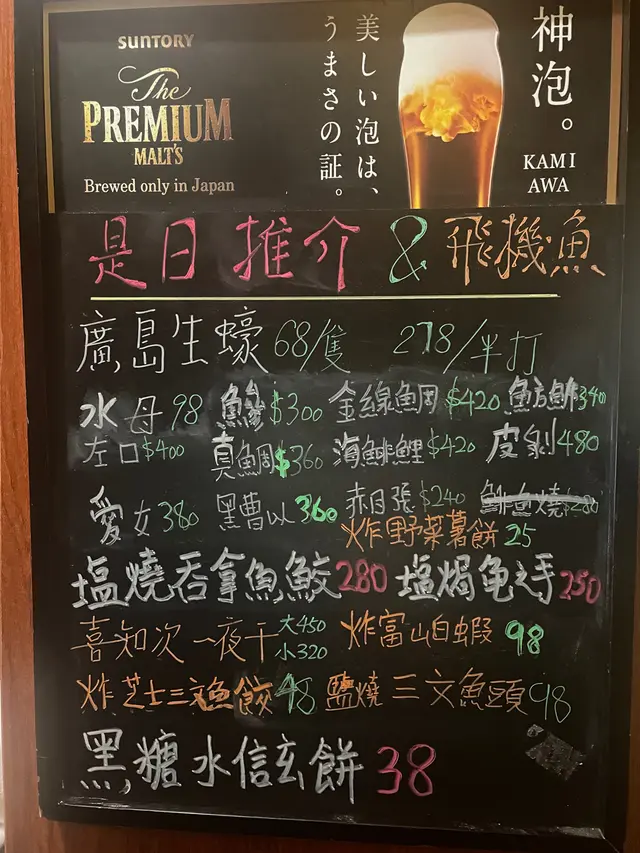 SUNTORY
The
PREMIUM
MALT'S
Brewed only in Japan
神泡。
KAMI
AWA
美しい泡は、
うまさの証。
是日推介 & 飛機魚
廣島生蠔 68/隻 278/半打
水母 98 $300 金線鯛 $420 魴鮄 340
左口 $400 真鯛 $360 海鯡鯉 $420 皮剝 480
愛女 380 黑曹以 360 赤目張 $240
炸野菜薯餅 25
塩燒吞拿魚鮫 280 塩焗龟之手 250
喜知次一夜干 大450 小320 炸富山白蝦 98
炸芝士三文魚餃 48 鹽燒三文魚頭 98
黑糖水信玄餅 38